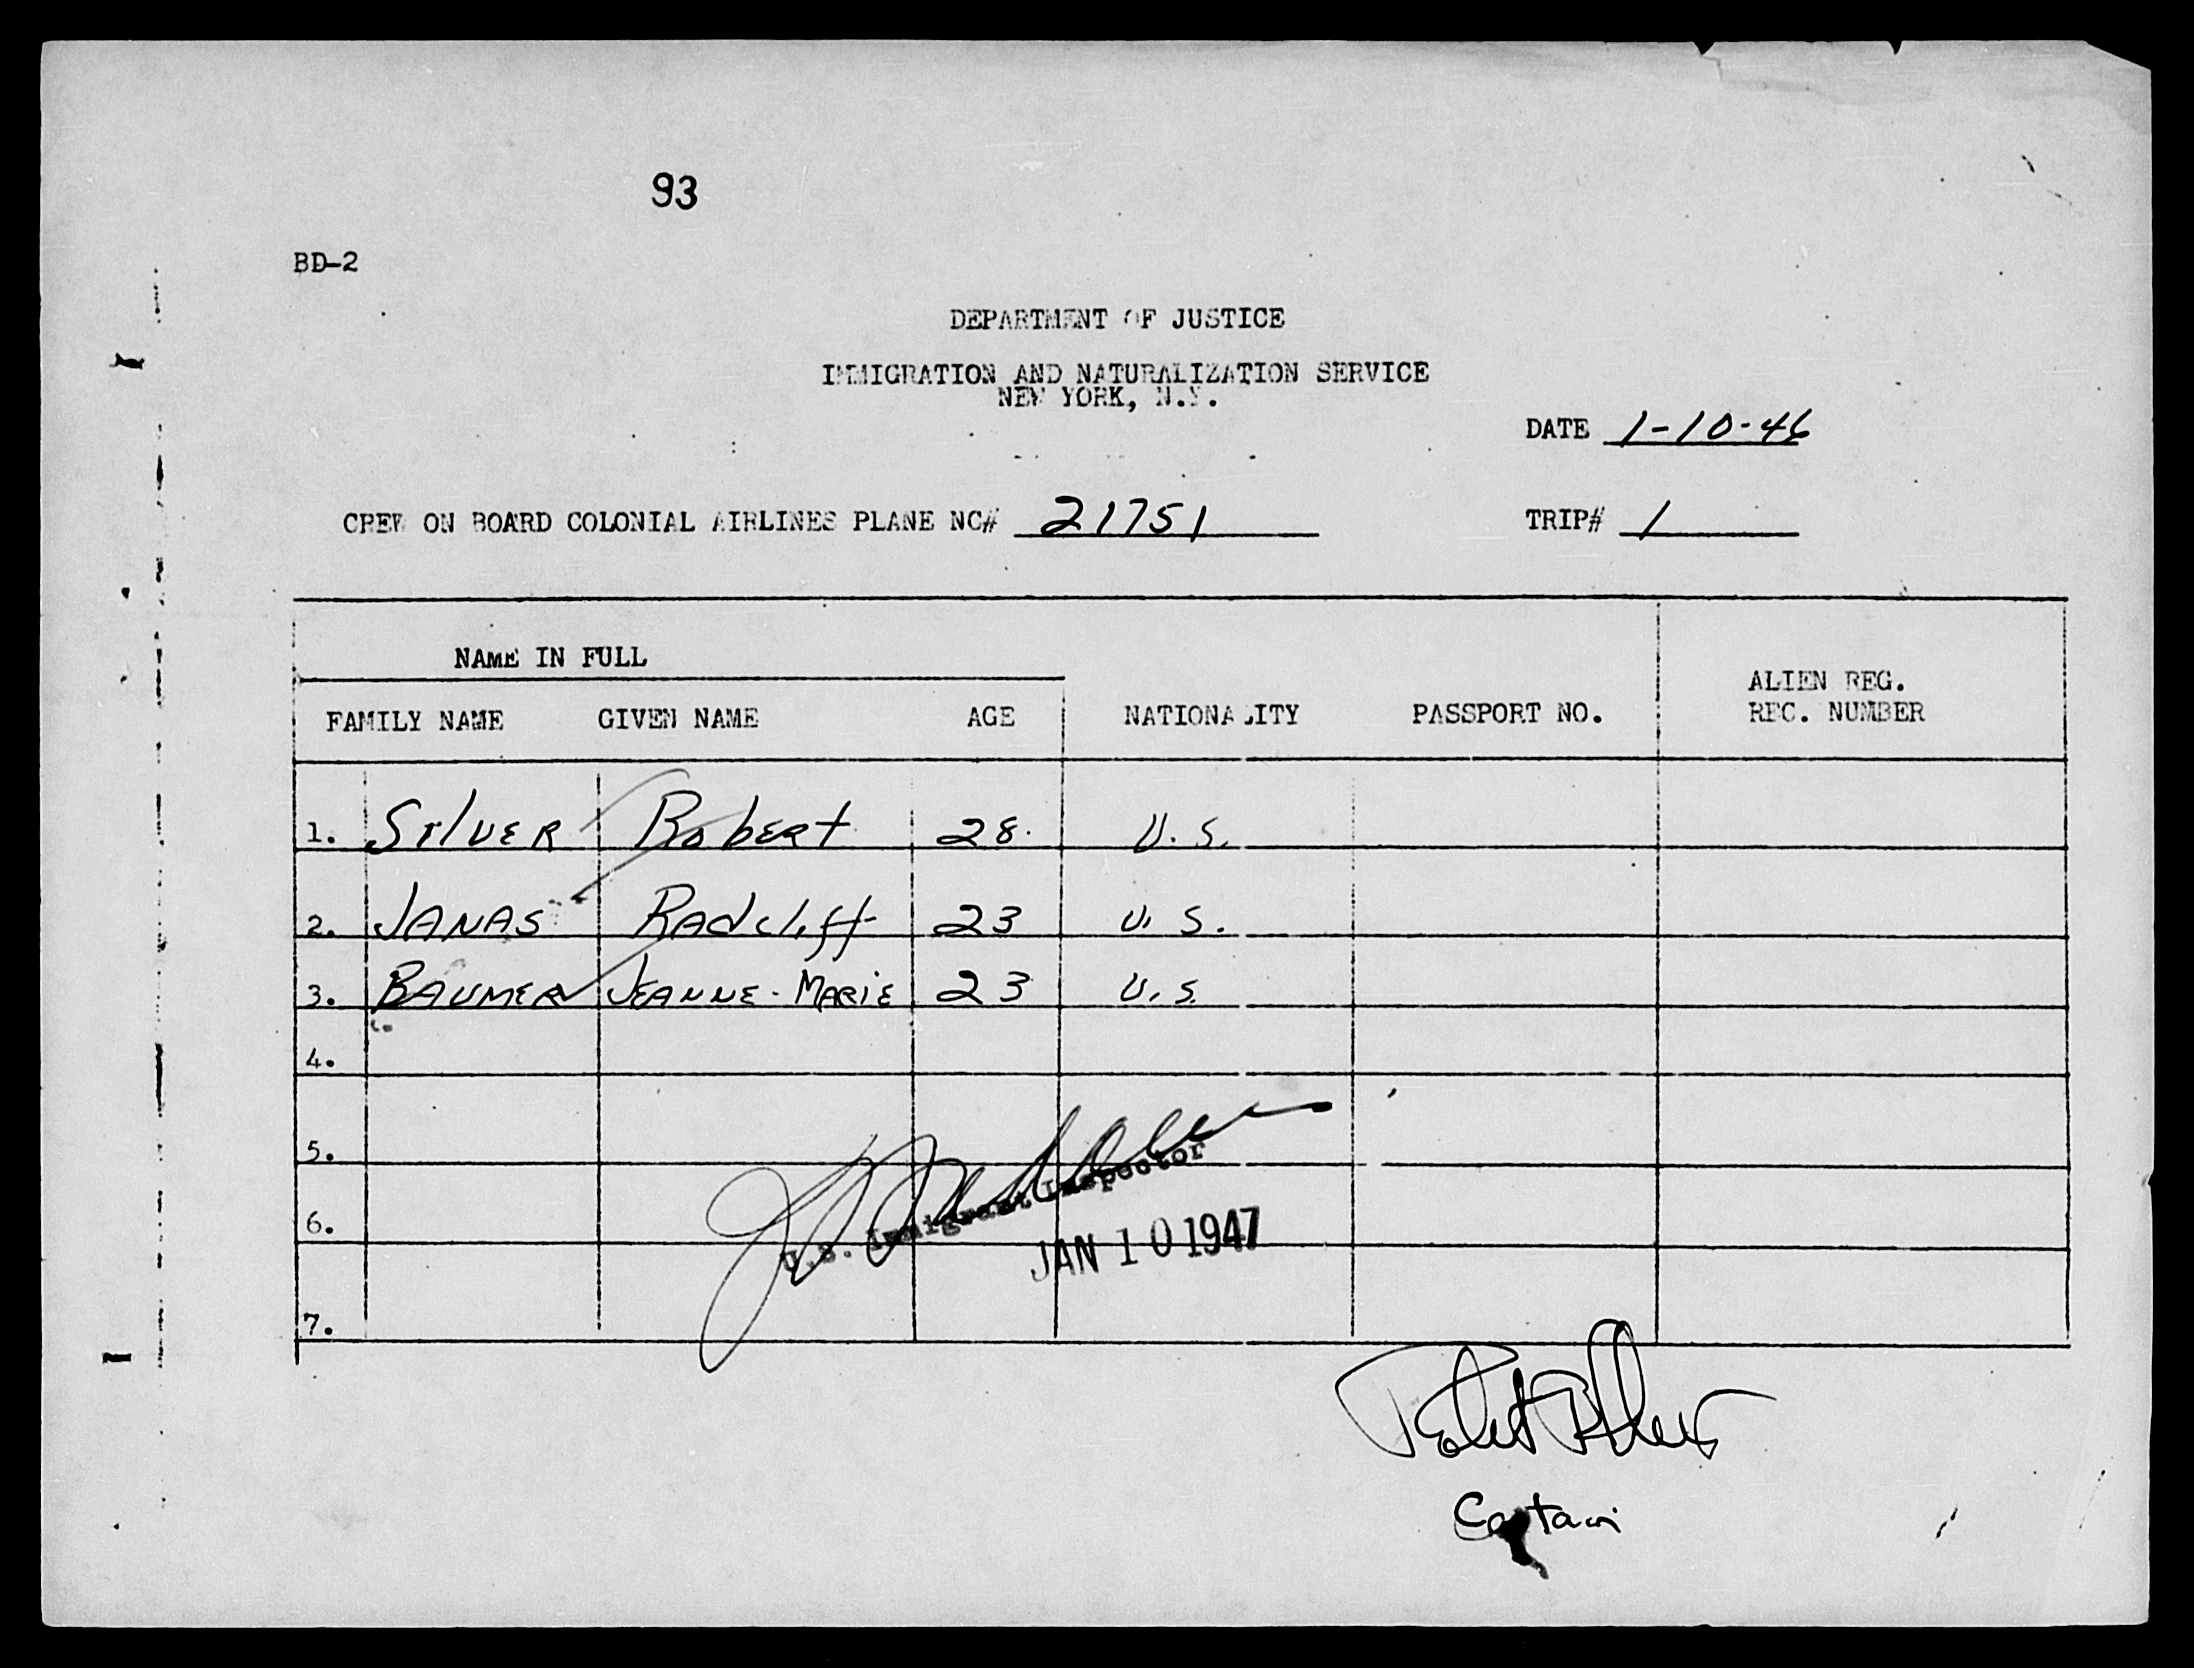 93
BD-2
DEPARTMENT OF JUSTICE
IMMIGRATION AND NATURALIZATION SERVICE
NEW YORK, N.Y.
DATE 1-10-46
CREW ON BOARD COLONIAL AIRLINES PLANE NC# 21751 TRIP# 1
NAME IN FULL
FAMILY NAME GIVEN NAME AGE NATIONALITY PASSPORT NO. ALIEN REG.
REC. NUMBER
1. SilvER RobERt 28. U.S.
2. JANAS RAdcliff 23 U.S.
3. BAUMER JEANNE-MARiE 23 U.S.
4.
5.
U.S. Immigrant Inspector
6.
JAN 10 1947
7.
Captain